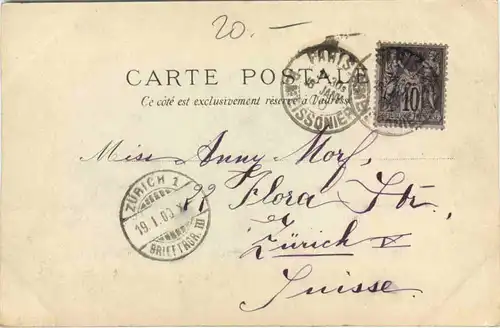 20.-
CARTE POSTALE
Ce côté est exclusivement réservé à l'adresse
PARIS
JANV
10
Miss Anny Morf,
22 Flora Str,
Zürich V
Suisse.
ZÜRICH 1
19.I.00
BRIEFTRGR. III